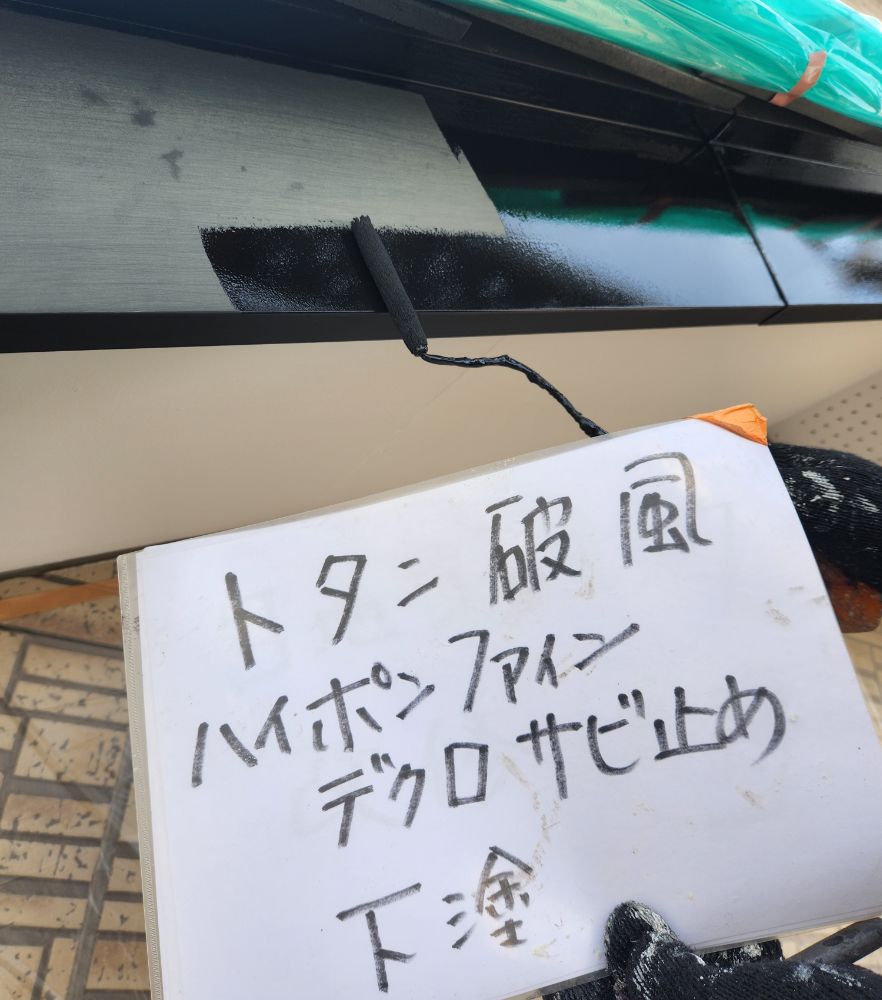 トタン破風
ハイポンファイン
デクロサビ止め
下塗